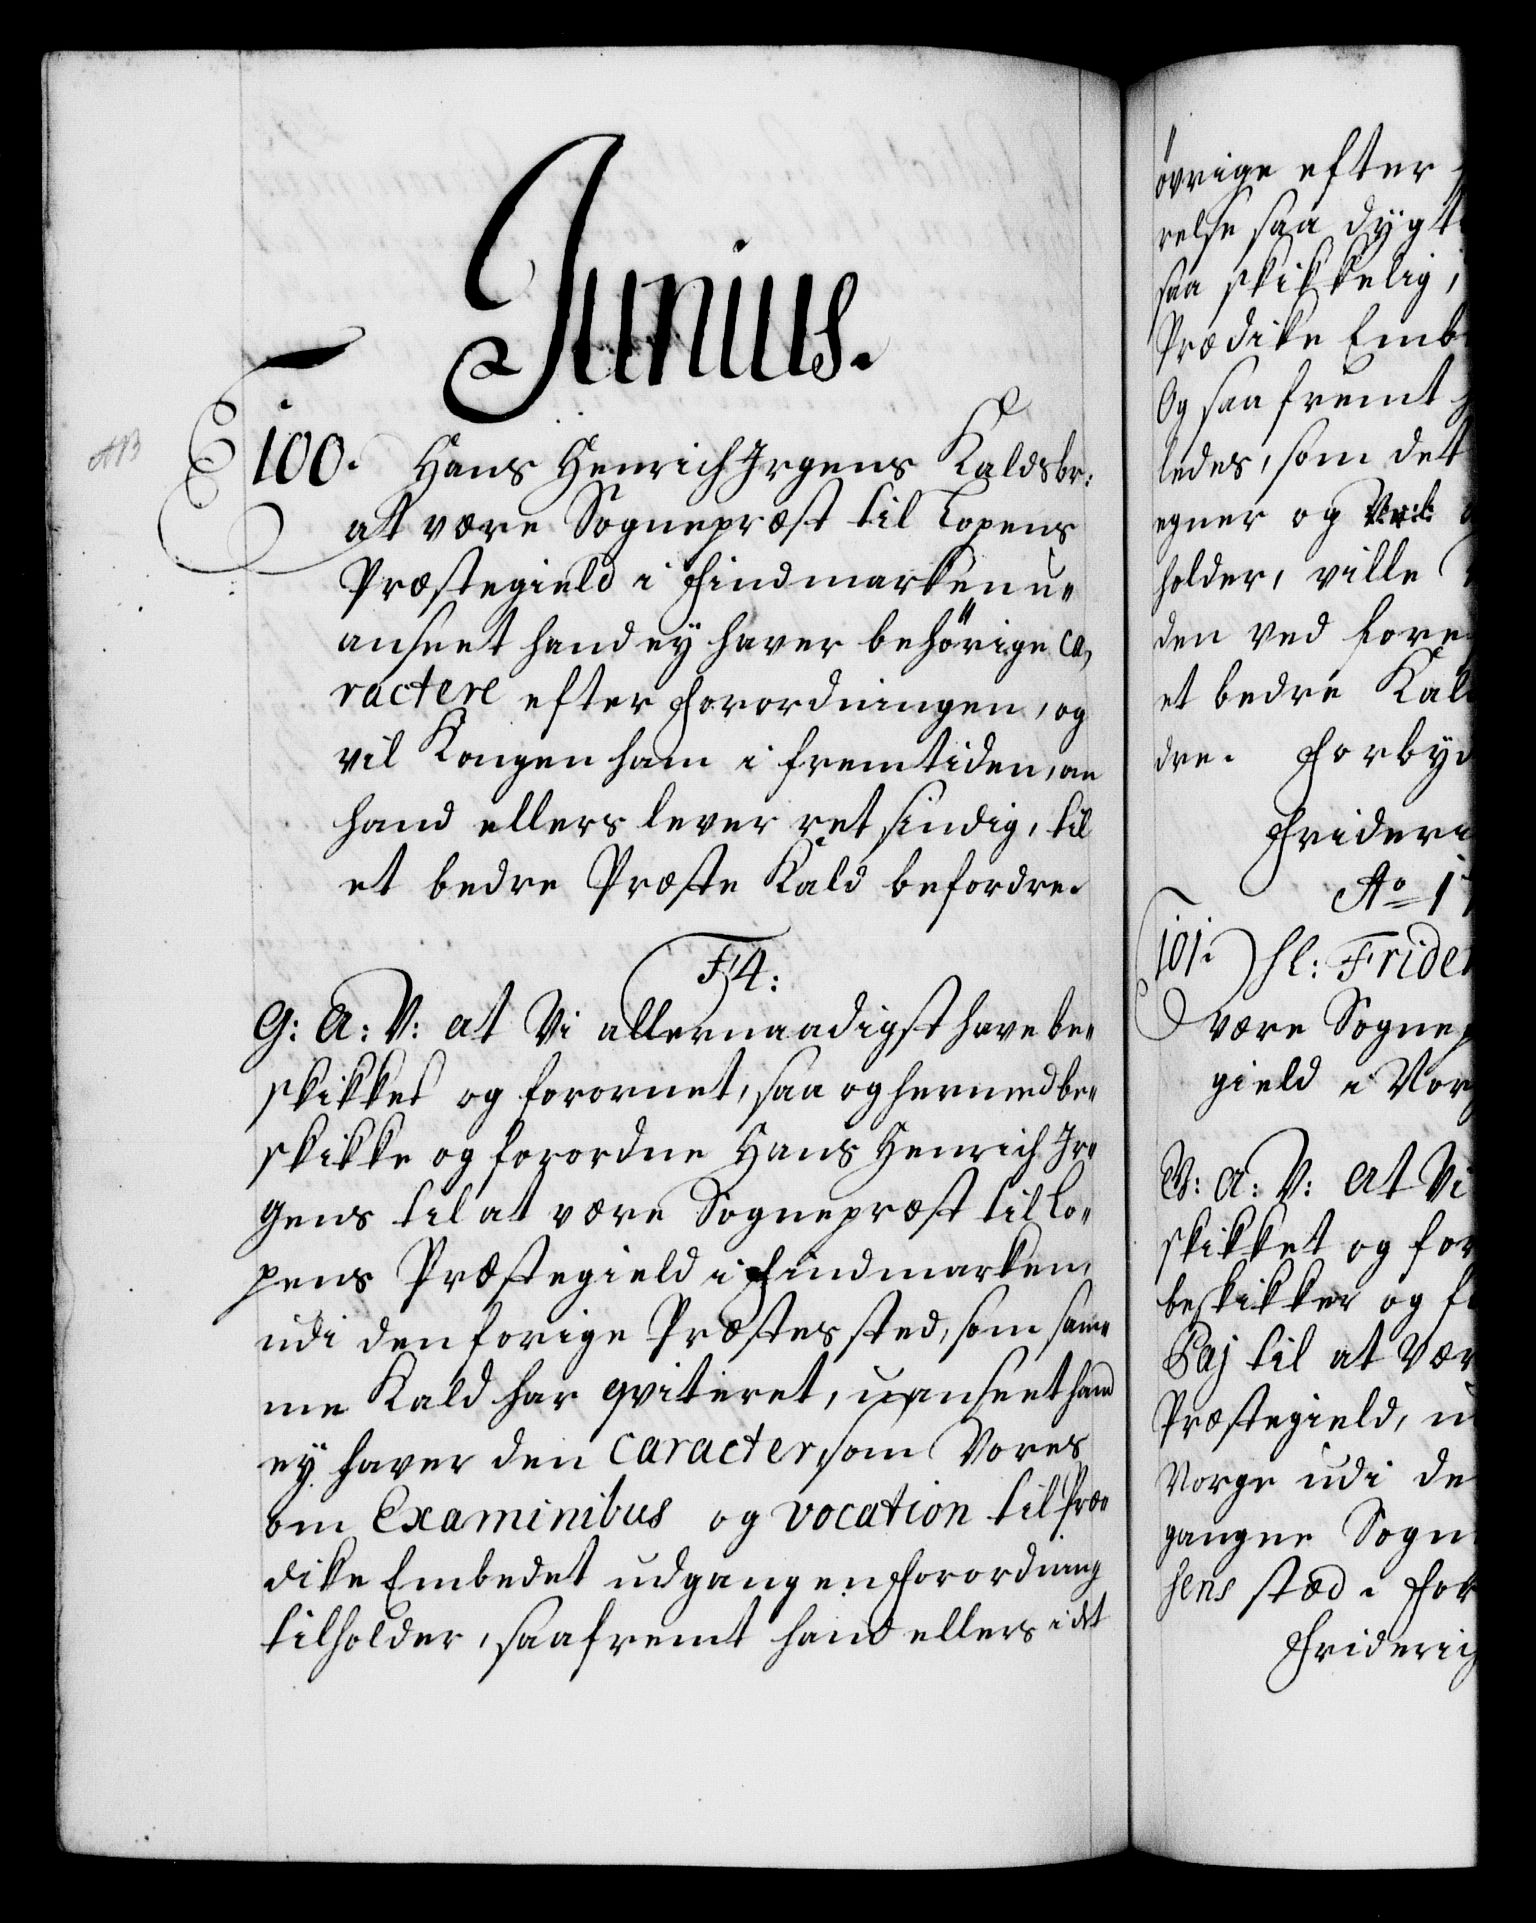 Junius.
AB
100. Hans Henrich Irgens Kaldsbr:
at være Sognepræst til Lopens
Præstegield i Findmarken u-
anseet hand ey haver behörige ca-
ractere efter Forordningen, og
vil Kongen ham i fremtiden, om
hand ellers lever retsindig, til
et bedre Præste Kald befordre.
F4:
G: A: V: at Vi allernaadigst have be-
skikket og forornet, saa og hermed be-
skikke og forordne Hans Henrich Ir-
gens til at være Sognepræst til Lo-
pens Præstegield i Findmarken,
udi den forige Præstes sted, som sam-
me Kald har qviteret, uanseet hand
ey haver den Caracter, som Vores
om Examinibus og vocation til Præ-
dike Embedet udgangen Forordning
tilholder, saafremt hand ellers i det
övrige efter
relse saa dygt
saa skikkelig,
Prædike Emb
Og saafremt
ledes, som det
egner og
holder, ville
den ved fore
et bedre Kal
dre. Forbyd
Frideri
Ao 17
101. Hl: Frider
være Sognep
gield i Nor
G: A: V: at Vi
skikket og for
beskikker og f
Paj til at vær
Præstegield, u
Norge udi de
gangne Sogn
hens stæd. For
Friderich